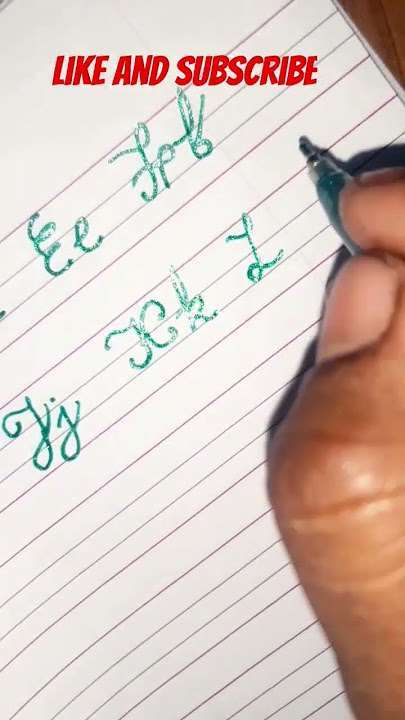 LIKE AND SUBSCRIBE
Ee Ff
Jj Kk L